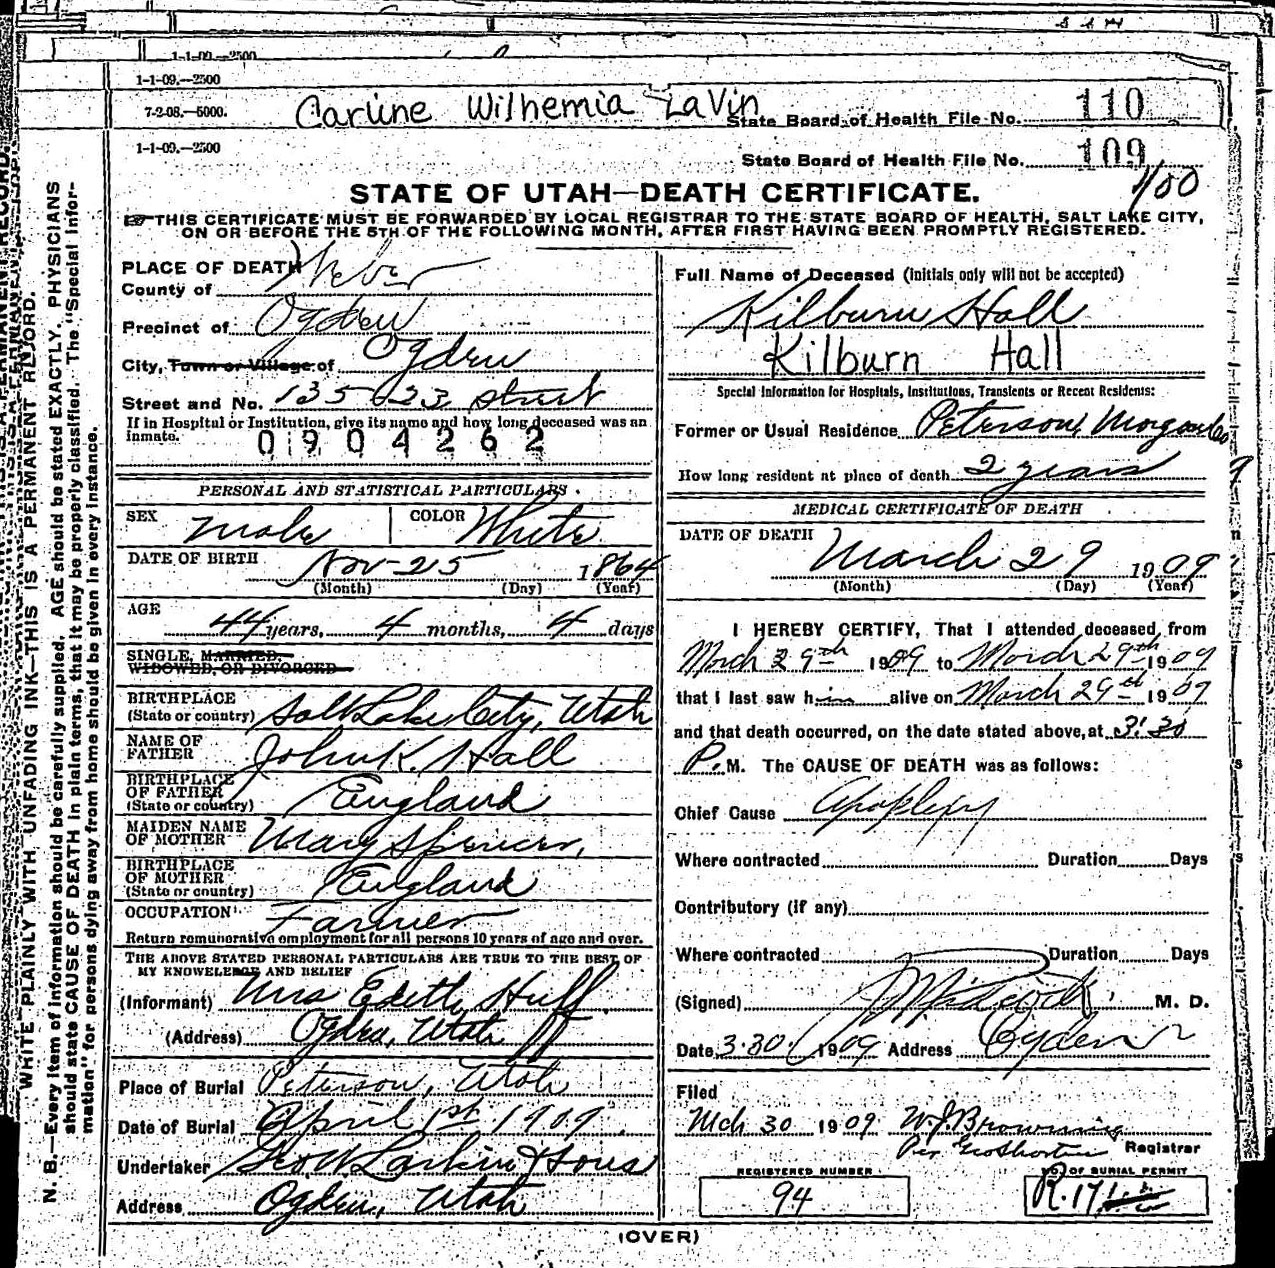 S S H
1-1-09.—2500
1-1-09.—2500
7-2-08.—5000. Carline Wilhemia LaVin State Board of Health File No. 110
1-1-09.—2500
State Board of Health File No. 109
1/00
STATE OF UTAH—DEATH CERTIFICATE.
THIS CERTIFICATE MUST BE FORWARDED BY LOCAL REGISTRAR TO THE STATE BOARD OF HEALTH, SALT LAKE CITY,
ON OR BEFORE THE 5TH OF THE FOLLOWING MONTH, AFTER FIRST HAVING BEEN PROMPTLY REGISTERED.
PLACE OF DEATH
County of Weber
Precinct of Ogden
City, Town or Village of Ogden
Street and No. 135 23 street
If in Hospital or Institution, give its name and how long deceased was an
inmate.
0904262
PERSONAL AND STATISTICAL PARTICULARS.
SEX Male COLOR White
DATE OF BIRTH Nov-25 1864
(Month) (Day) (Year)
AGE
44 years, 4 months, 4 days
SINGLE, MARRIED,
WIDOWED, OR DIVORCED
BIRTHPLACE
(State or country) Salt Lake City, Utah
NAME OF
FATHER John K. Hall
BIRTHPLACE
OF FATHER
(State or country) England
MAIDEN NAME
OF MOTHER Mary Spencer,
BIRTHPLACE
OF MOTHER
(State or country) England
OCCUPATION Farmer
Return remunerative employment for all persons 10 years of age and over.
THE ABOVE STATED PERSONAL PARTICULARS ARE TRUE TO THE BEST OF
MY KNOWLEDGE AND BELIEF
(Informant) Mrs Edith Huff
(Address) Ogden, Utah
Place of Burial Peterson, Utah
Date of Burial April 1st 1909
Undertaker Larkin & Sons
Address Ogden, Utah
Full Name of Deceased (Initials only will not be accepted)
Kilburn Hall
Kilburn Hall
Special Information for Hospitals, Institutions, Transients or Recent Residents:
Former or Usual Residence Peterson, Morgan Co
How long resident at place of death 2 years
MEDICAL CERTIFICATE OF DEATH
DATE OF DEATH
March 29 1909
(Month) (Day) (Year)
I HEREBY CERTIFY, That I attended deceased from
March 29th 1909 to March 29th 1909
that I last saw him alive on March 29th 1909
and that death occurred, on the date stated above, at 3:30
P. M. The CAUSE OF DEATH was as follows:
Chief Cause Apoplexy
Where contracted Duration Days
Contributory (if any)
Where contracted Duration Days
(Signed) M. D.
Date 3.30. 1909 Address Ogden
Filed
Mch 30 1909 W. J. Browning
Per Registrar
REGISTERED NUMBER
94
NO. OF BURIAL PERMIT
R.171
(OVER)
WRITE PLAINLY WITH UNFADING INK—THIS IS A PERMANENT RECORD.
N. B.—Every item of information should be carefully supplied. AGE should be stated EXACTLY. PHYSICIANS
should state CAUSE OF DEATH in plain terms, that it may be properly classified. The "Special Infor-
mation" for persons dying away from home should be given in every instance.